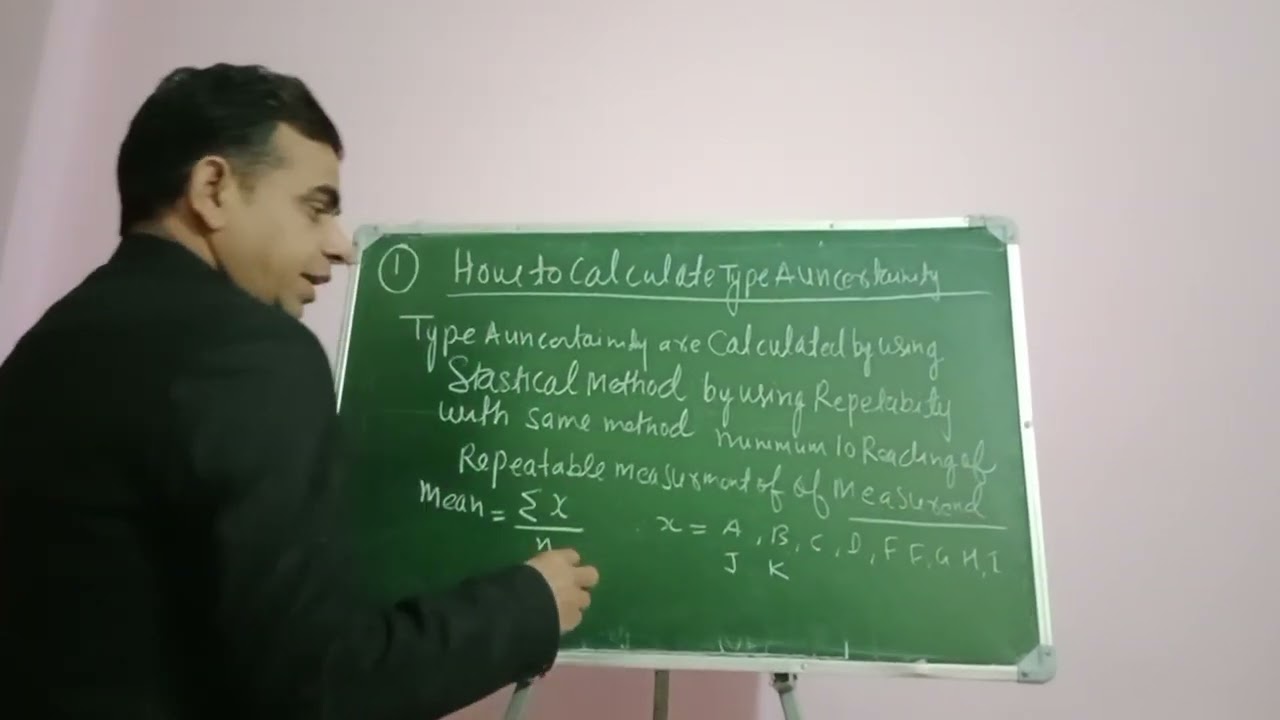 1 How to Calculate Type A uncertainity
Type A uncertainity are Calculated by using
Stastical Method by using Repetabity
with same method minimum 10 Reading of
Repeatable measurment of of Measurend
Mean = Σ x / n
x = A, B, C, D, F F, G H, I
J K